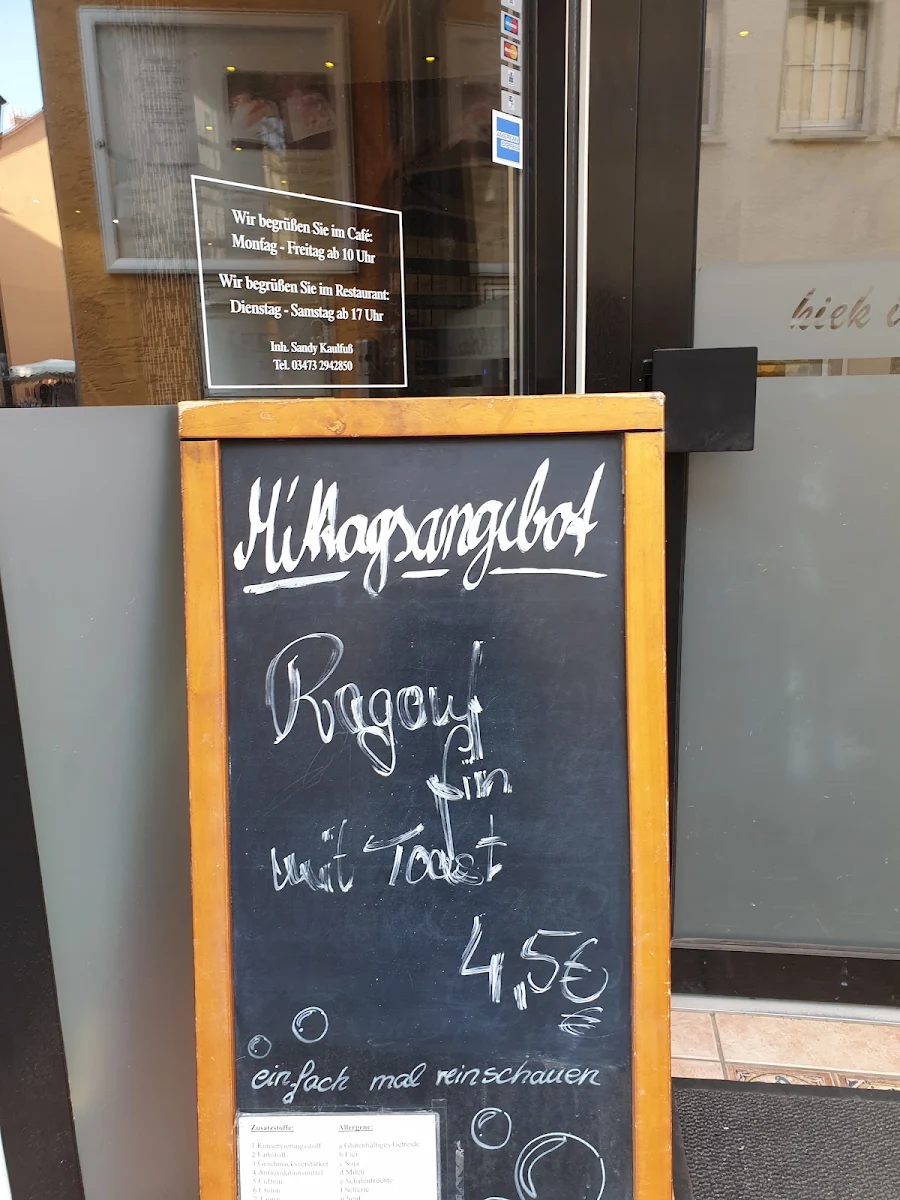 AMERICAN EXPRESS
Wir begrüßen Sie im Café:
Montag - Freitag ab 10 Uhr
Wir begrüßen Sie im Restaurant:
Dienstag - Samstag ab 17 Uhr
Inh. Sandy Kaulfuß
Tel. 03473 2942850
kiek
Mittagsangebot
Ragout
fin
mit Toast
4,5€
€
einfach mal reinschauen
Zusatzstoffe: Allergene:
1 Konservierungsstoff a Glutenhaltiges Getreide
2 Farbstoff b Eier
3 Geschmacksverstärker c Soja
4 Antioxidationsmittel d Milch
5 Coffein e Schalenfrüchte
6 Chinin f Sellerie
g Senf